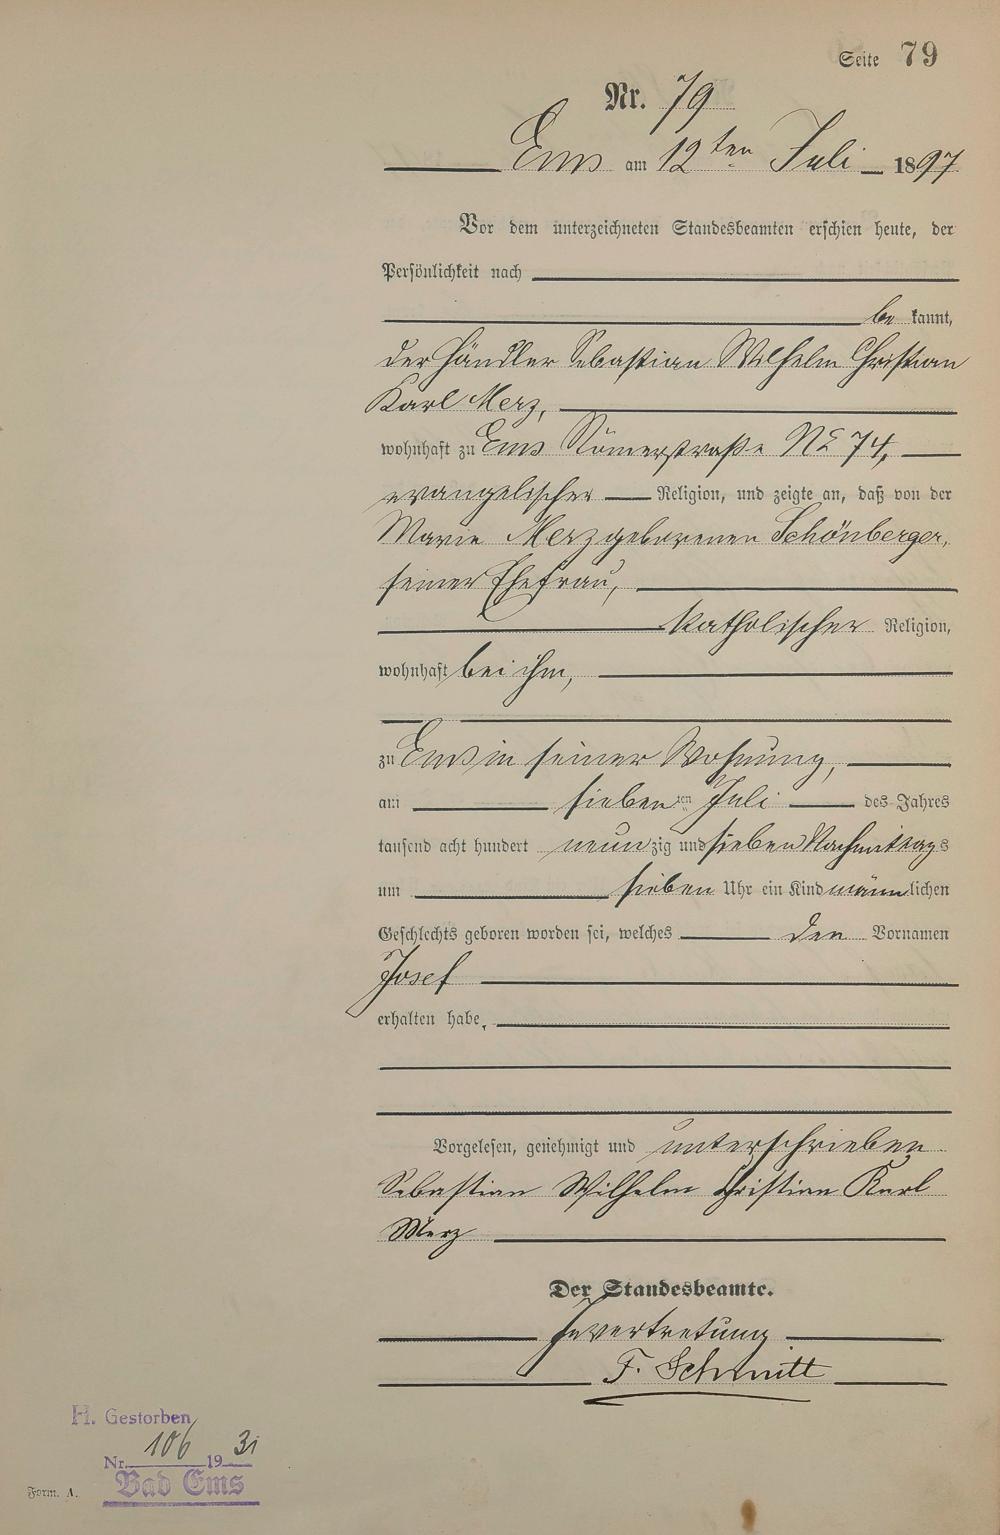 Seite 79
Nr. 79
Ems am 12ten Juli 1897
Vor dem unterzeichneten Standesbeamten erschien heute, der
Persönlichkeit nach
be kannt,
der Händler Sebastian Wilhelm Christian
Karl Merz,
wohnhaft zu Ems Römerstraße No 74,
evangelischer Religion, und zeigte an, daß von der
Marie Merz geborenen Schönberger,
seiner Ehefrau,
katholischer Religion,
wohnhaft bei ihm,
zu Ems in seiner Wohnung,
am sieben ten Juli des Jahres
tausend acht hundert neun zig und sieben Nachmittags
um sieben Uhr ein Kind männlichen
Geschlechts geboren worden sei, welches den Vornamen
Josef
erhalten habe.
Vorgelesen, genehmigt und unterschrieben
Sebastian Wilhelm Christian Karl
Merz
Der Standesbeamte.
In Vertretung
F. Schmitt
H. Gestorben
Nr. 106 1931
Bad Ems
Form. A.